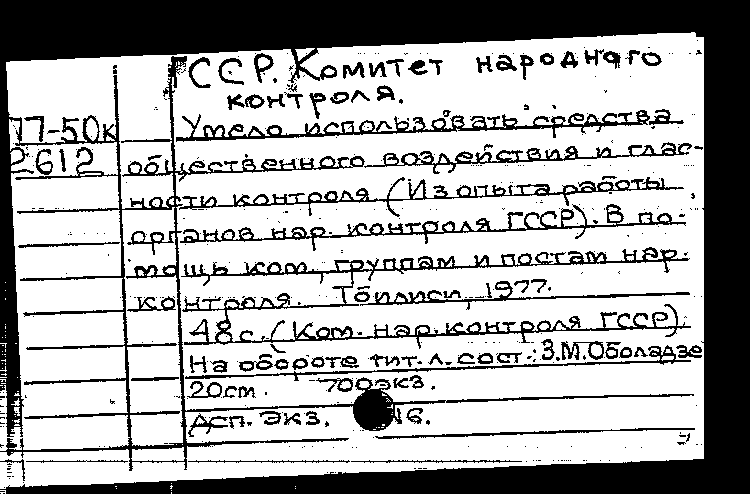 ГССР. Комитет народного
контроля.
77-50к
2612
Умело использовать средства
общественного воздействия и глас-
ности контроля (Из опыта работы
органов нар. контроля ГССР). В по-
мощь ком., группам и постам нар.
контроля. Тбилиси, 1977.
48с. (Ком. нар. контроля ГССР).
На обороте тит. л. сост.: З.М.Оболадзе
20см. 700экз.
ДСП. Экз. 16.